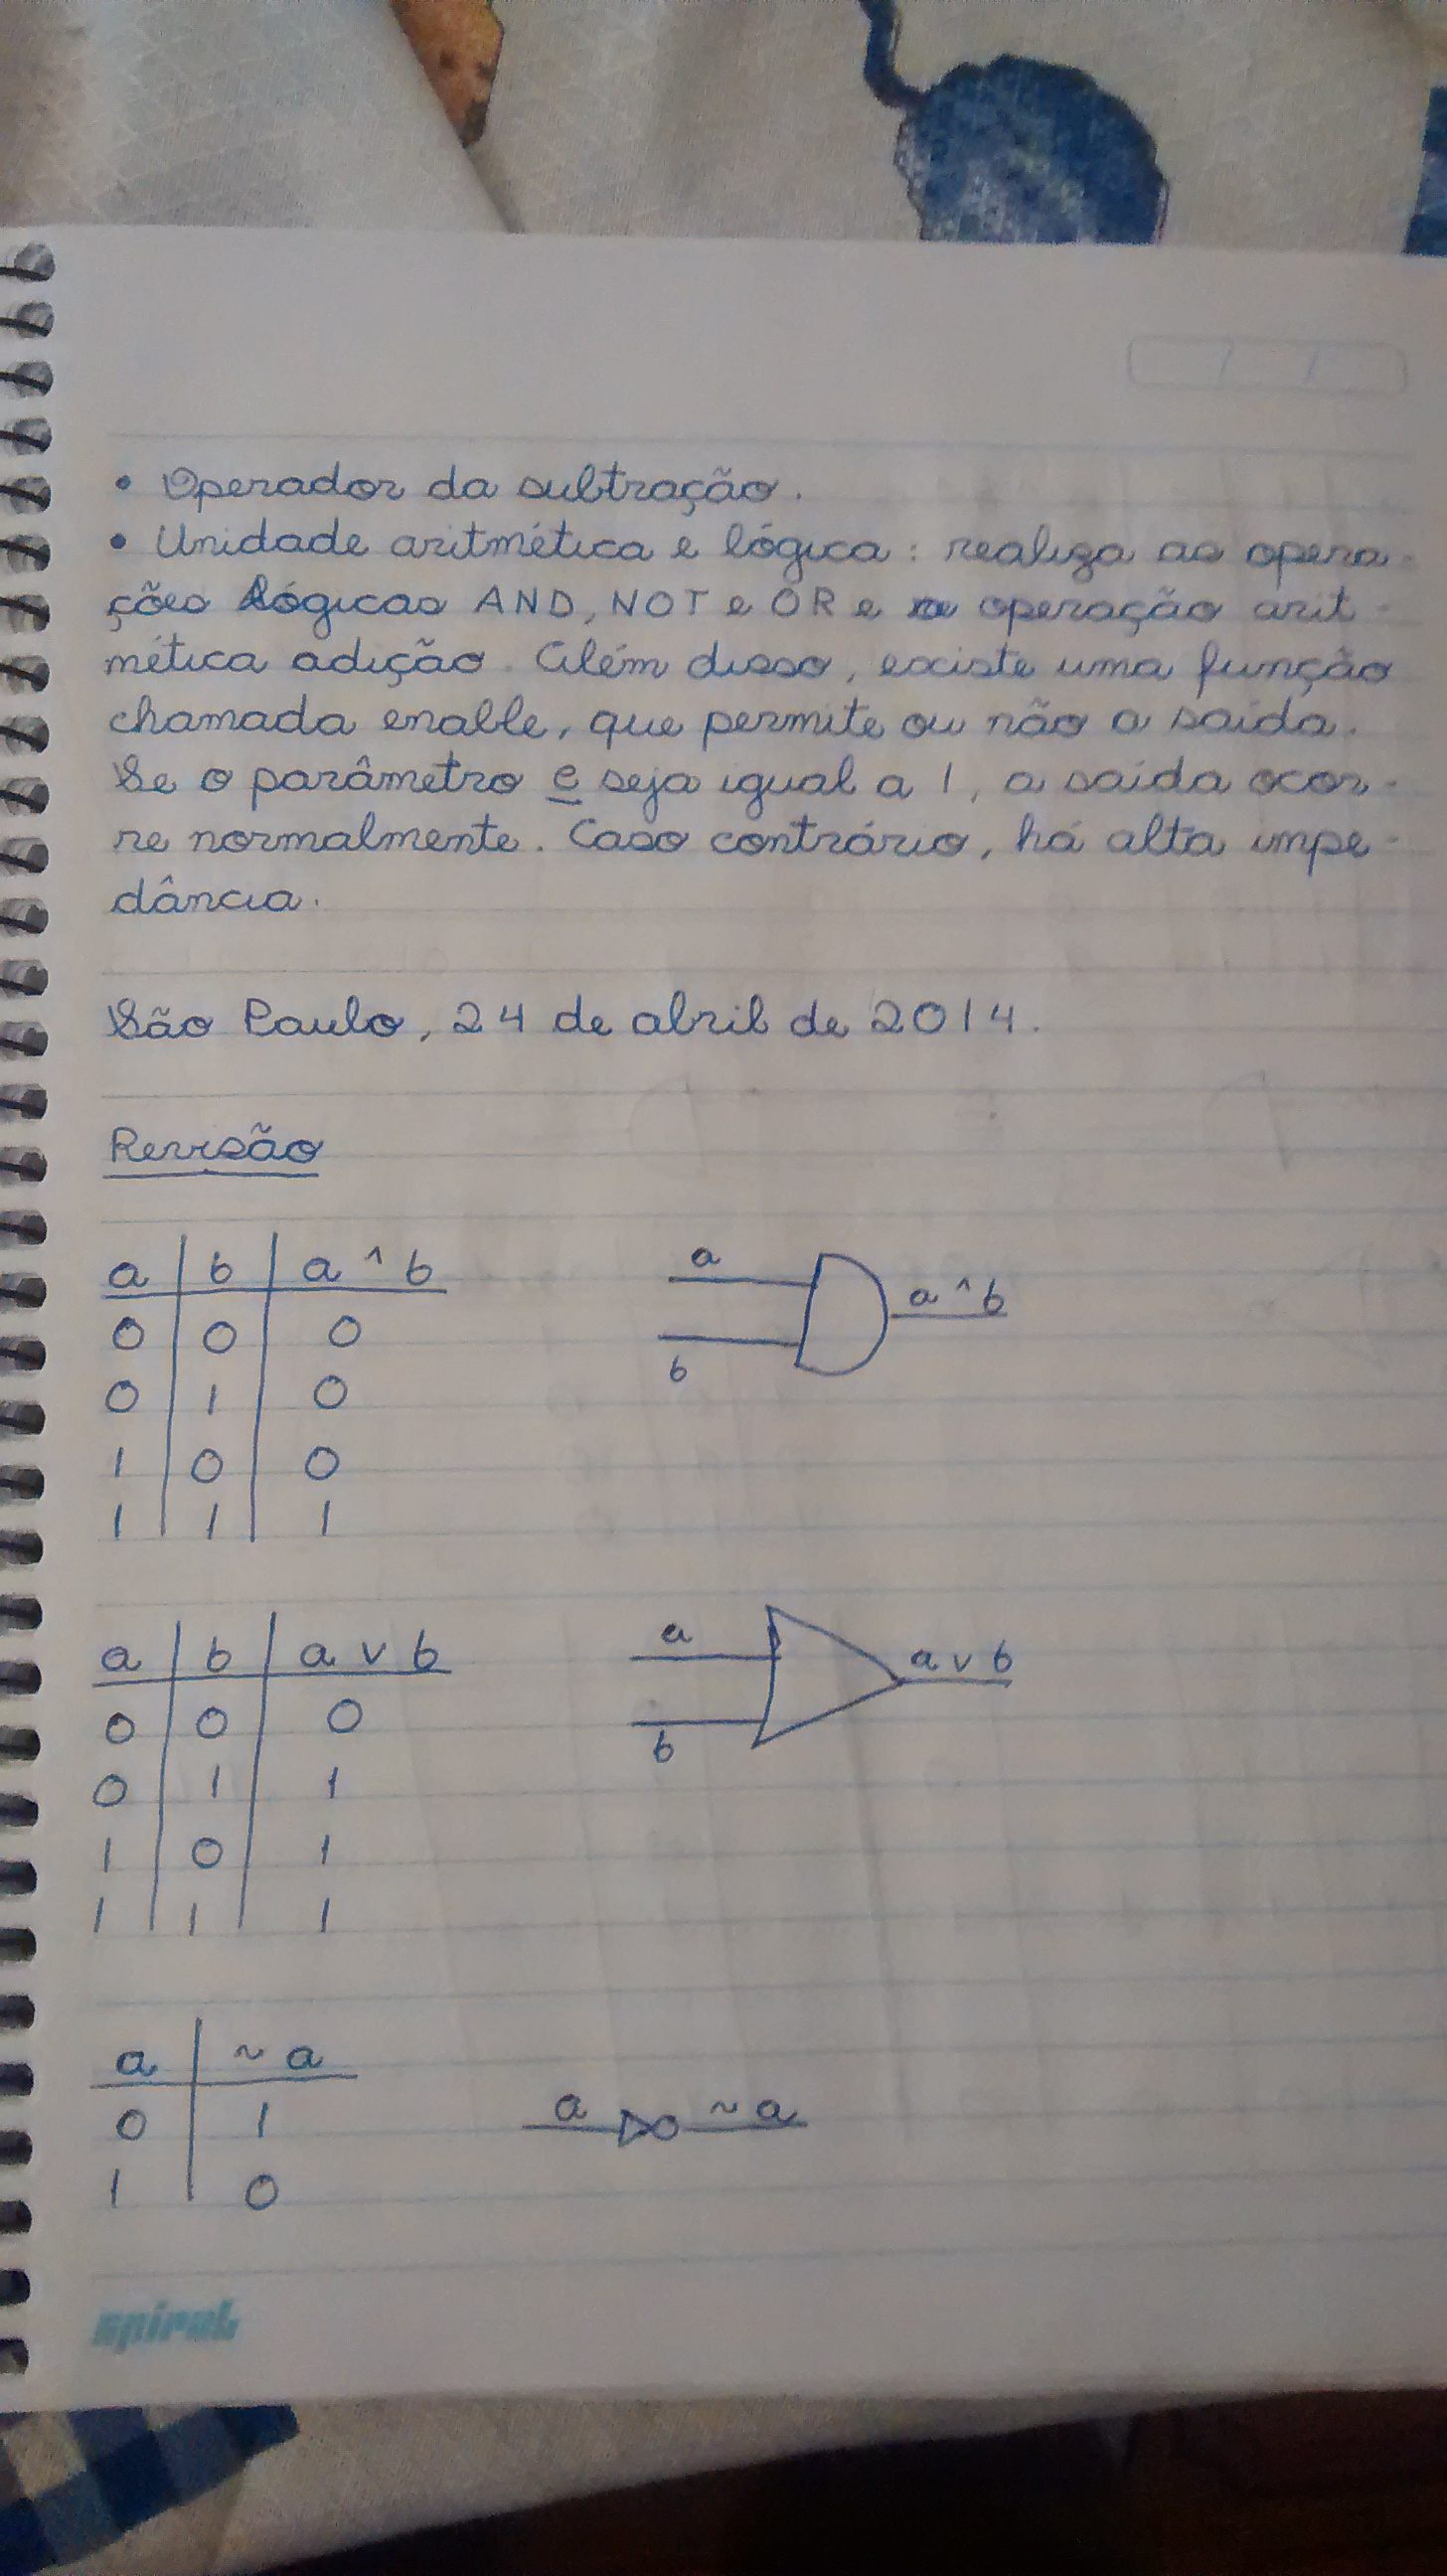 • Operador da subtração.
• Unidade aritmética e lógica: realiza as opera-
ções lógicas AND, NOT e OR e a operação arit-
mética adição. Além disso, existe uma função
chamada enable, que permite ou não a saída.
Se o parâmetro e seja igual a 1, a saída ocor-
re normalmente. Caso contrário, há alta impe-
dância.
São Paulo, 24 de abril de 2014.
Revisão
a b a ^ b
0 0 0
0 1 0
1 0 0
1 1 1
a
a ^ b
b
a b a v b
0 0 0
0 1 1
1 0 1
1 1 1
a
a v b
b
a ~ a
0 1
1 0
a ~ a
spiral